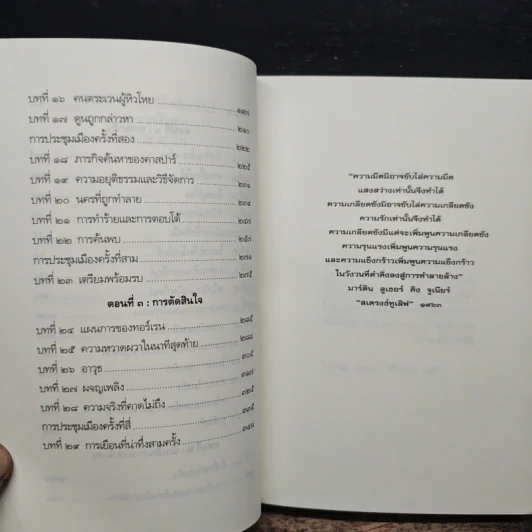 บทที่ ๑๖ คนตระเวนผู้หิวโหย
บทที่ ๑๗ ดูนถูกกล่าวหา ๒๑๐
การประชุมเมืองครั้งที่สอง ๒๒๒
บทที่ ๑๘ ภารกิจค้นหาของคาสปาร์ ๒๒๕
บทที่ ๑๙ ความอยุติธรรมและวิธีจัดการ
บทที่ ๒๐ นครที่ถูกทำลาย
บทที่ ๒๑ การทำร้ายและการตอบโต้
บทที่ ๒๒ การค้นพบ
การประชุมเมืองครั้งที่สาม ๒๗๑
บทที่ ๒๓ เตรียมพร้อมรบ ๒๗๕
ตอนที่ ๓ : การตัดสินใจ
บทที่ ๒๔ แผนการของทอร์เรน ๒๘๕
บทที่ ๒๕ ความหวาดผวาในนาทีสุดท้าย ๒๘๘
บทที่ ๒๖ อาวุธ ๓๐๕
บทที่ ๒๗ ผจญเพลิง ๓๑๗
บทที่ ๒๘ ความจริงที่คาดไม่ถึง ๓๒๕
การประชุมเมืองครั้งที่สี่ ๓๓๕
บทที่ ๒๙ การเยือนที่น่าทึ่งสามครั้ง ๓๔๘
"ความมืดมิอาจขับไล่ความมืด
แสงสว่างเท่านั้นจึงทำได้
ความเกลียดชังมิอาจขับไล่ความเกลียดชัง
ความรักเท่านั้นจึงทำได้
ความเกลียดชังมีแต่จะเพิ่มพูนความเกลียดชัง
ความรุนแรงเพิ่มพูนความรุนแรง
และความแข็งกร้าวเพิ่มพูนความแข็งกร้าว
ในวังวนที่ดำดิ่งลงสู่การทำลายล้าง"
มาร์ติน ลูเธอร์ คิง จูเนียร์
"สเตรงธ์ทูเลิฟ" ๑๙๖๓